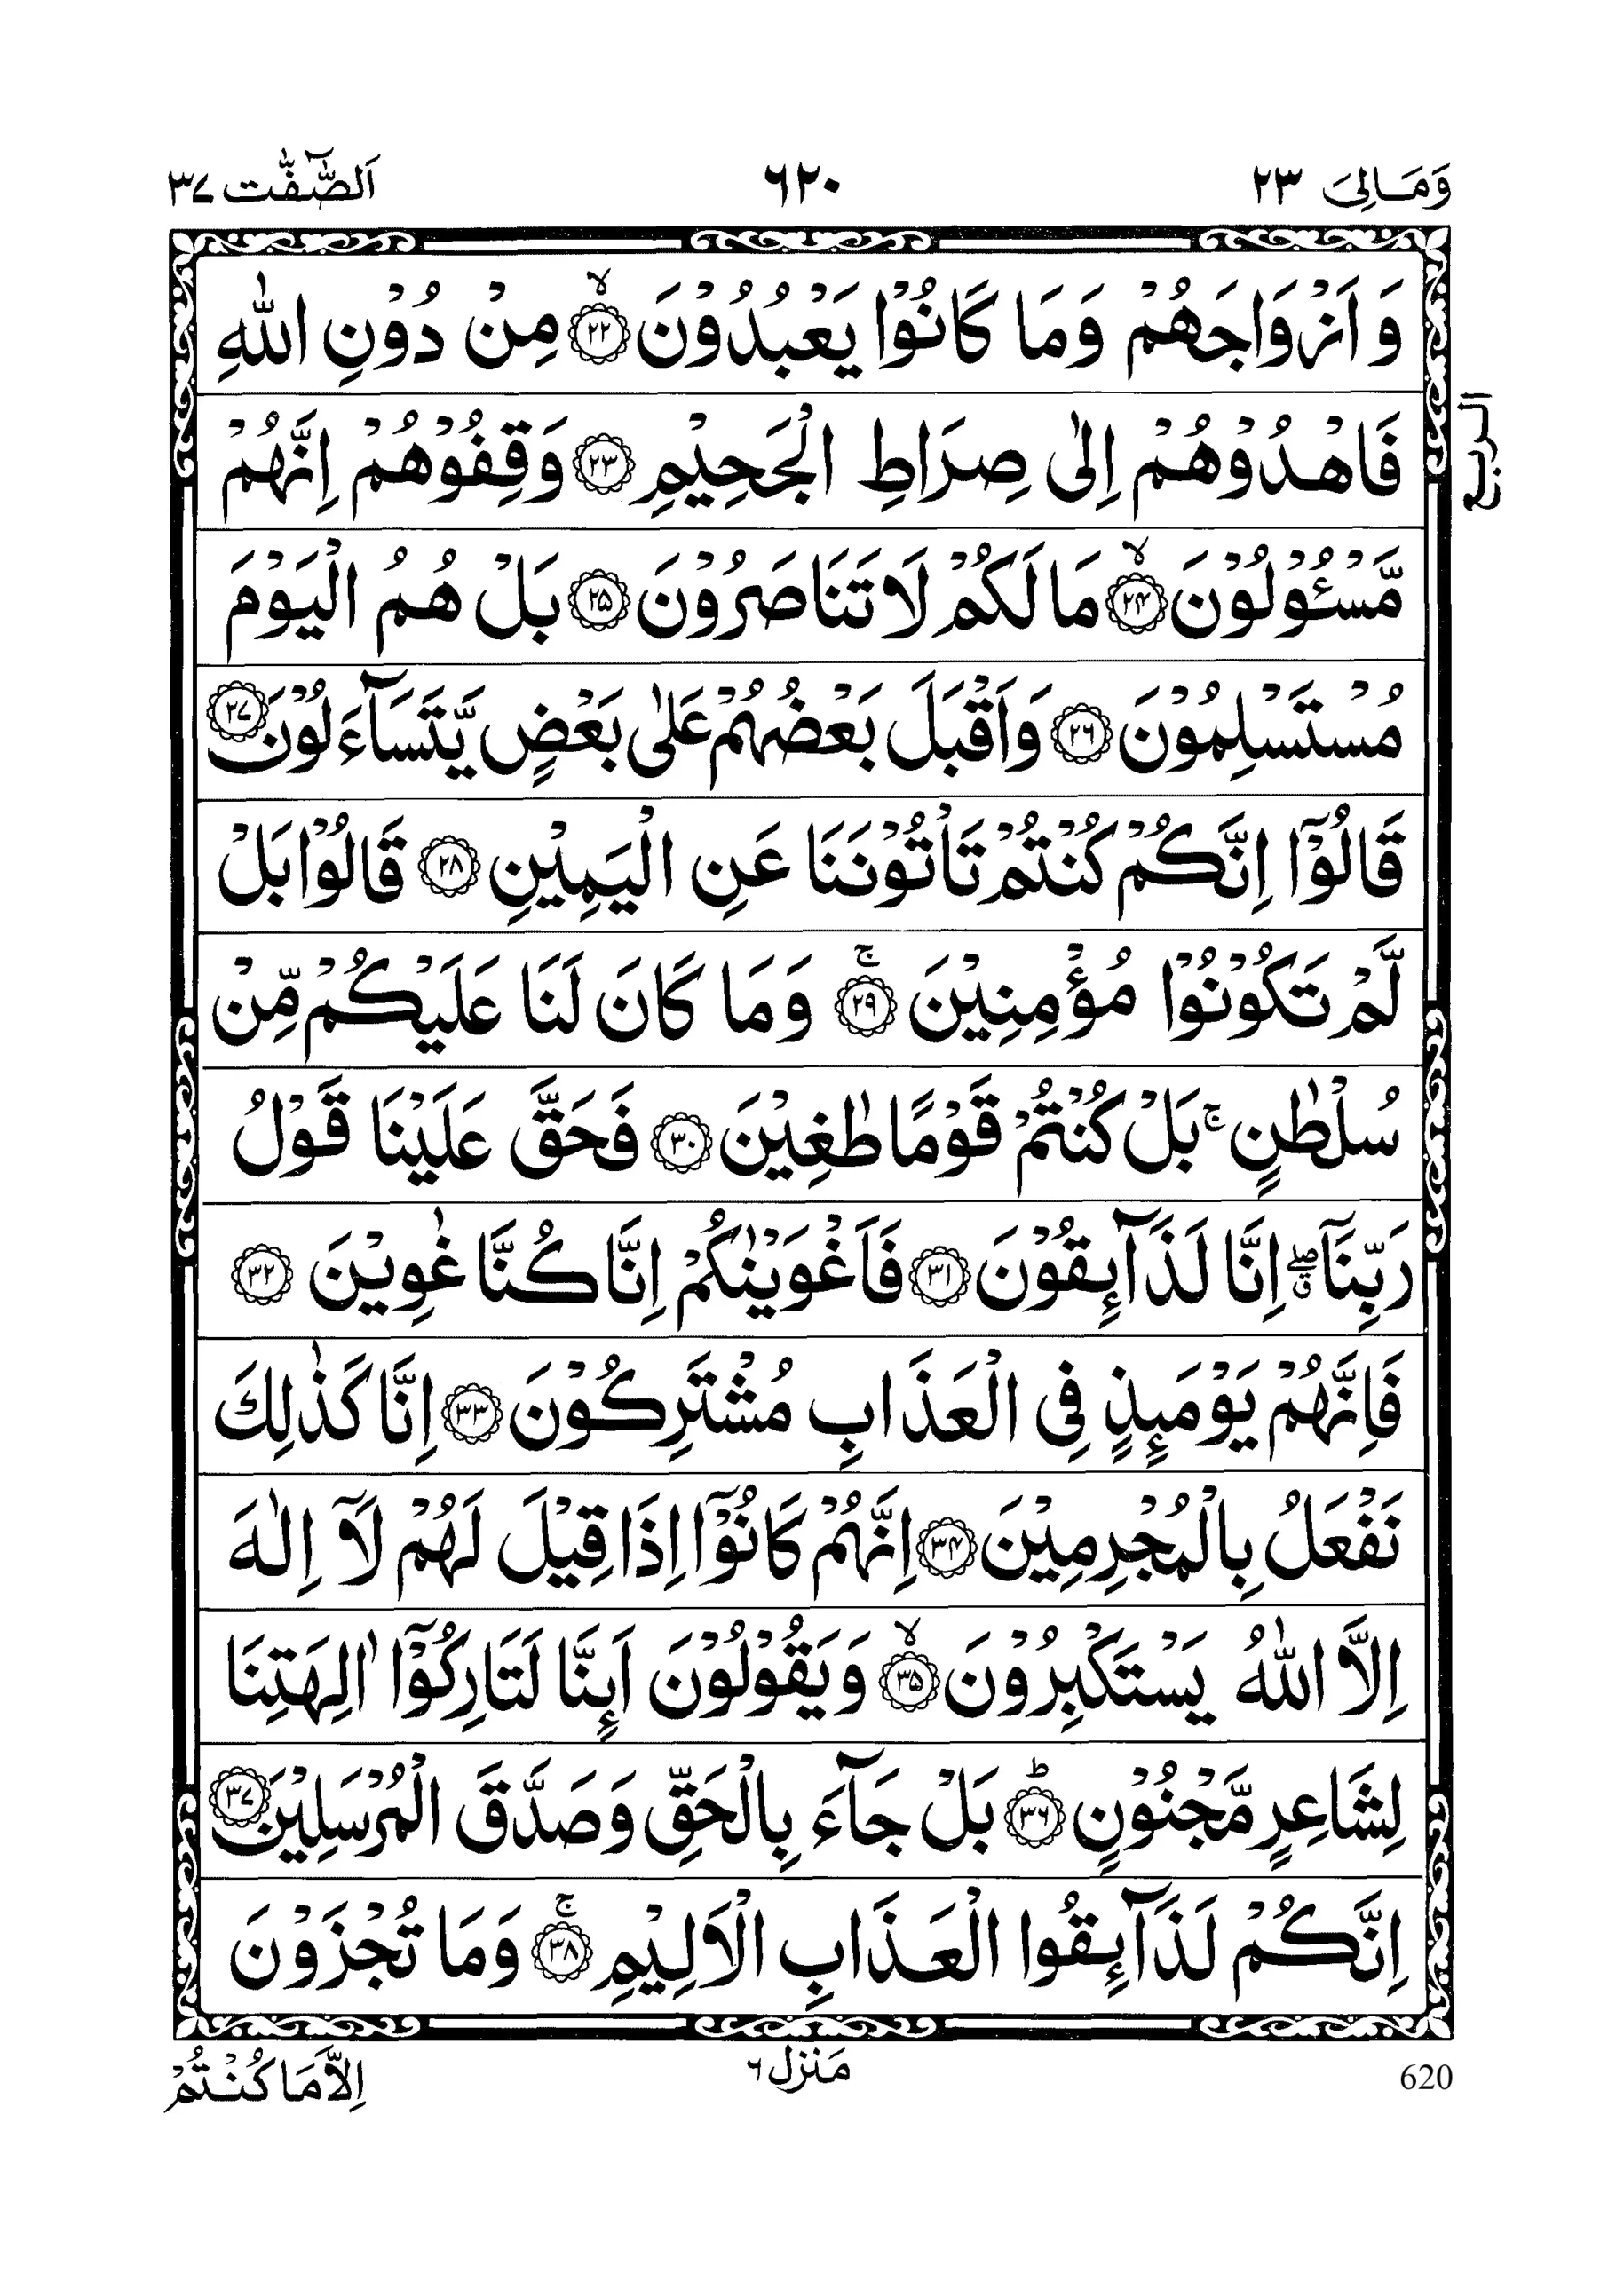 وَمَالِیَ ۲۳
۶۲۰
اَلصّٰٓفّٰت ۳۷
وَ اَزْوَاجَهُمْ وَمَا كَانُوْا يَعْبُدُوْنَ ۙ۲۲ مِنْ دُوْنِ اللّٰهِ
فَاهْدُوْهُمْ اِلٰى صِرَاطِ الْجَحِيْمِ ۲۳ وَقِفُوْهُمْ اِنَّهُمْ
مَّسْـُٔوْلُوْنَ ۙ۲۴ مَا لَكُمْ لَا تَنَاصَرُوْنَ ۲۵ بَلْ هُمُ الْيَوْمَ
مُسْتَسْلِمُوْنَ ۲۶ وَاَقْبَلَ بَعْضُهُمْ عَلٰى بَعْضٍ يَّتَسَآءَلُوْنَ ۲۷
قَالُوْٓا اِنَّكُمْ كُنْتُمْ تَاْتُوْنَنَا عَنِ الْيَمِيْنِ ۲۸ قَالُوْا بَلْ
لَّمْ تَكُوْنُوْا مُؤْمِنِيْنَ ۚ۲۹ وَمَا كَانَ لَنَا عَلَيْكُمْ مِّنْ
سُلْطٰنٍ ۚ بَلْ كُنْتُمْ قَوْمًا طٰغِيْنَ ۳۰ فَحَقَّ عَلَيْنَا قَوْلُ
رَبِّنَآ ۖۗ اِنَّا لَذَآئِقُوْنَ ۳۱ فَاَغْوَيْنٰكُمْ اِنَّا كُنَّا غٰوِيْنَ ۳۲
فَاِنَّهُمْ يَوْمَئِذٍ فِى الْعَذَابِ مُشْتَرِكُوْنَ ۳۳ اِنَّا كَذٰلِكَ
نَفْعَلُ بِالْمُجْرِمِيْنَ ۳۴ اِنَّهُمْ كَانُوْٓا اِذَا قِيْلَ لَهُمْ لَآ اِلٰهَ
اِلَّا اللّٰهُ يَسْتَكْبِرُوْنَ ۙ۳۵ وَيَقُوْلُوْنَ اَئِنَّا لَتَارِكُوْٓا اٰلِهَتِنَا
لِشَاعِرٍ مَّجْنُوْنٍ ؕ۳۶ بَلْ جَآءَ بِالْحَقِّ وَصَدَّقَ الْمُرْسَلِيْنَ ۳۷
اِنَّكُمْ لَذَآئِقُوا الْعَذَابِ الْاَلِيْمِ ۚ۳۸ وَمَا تُجْزَوْنَ
الربع
620
مَنزل ۶
اِلَّا مَا كُنْتُمْ